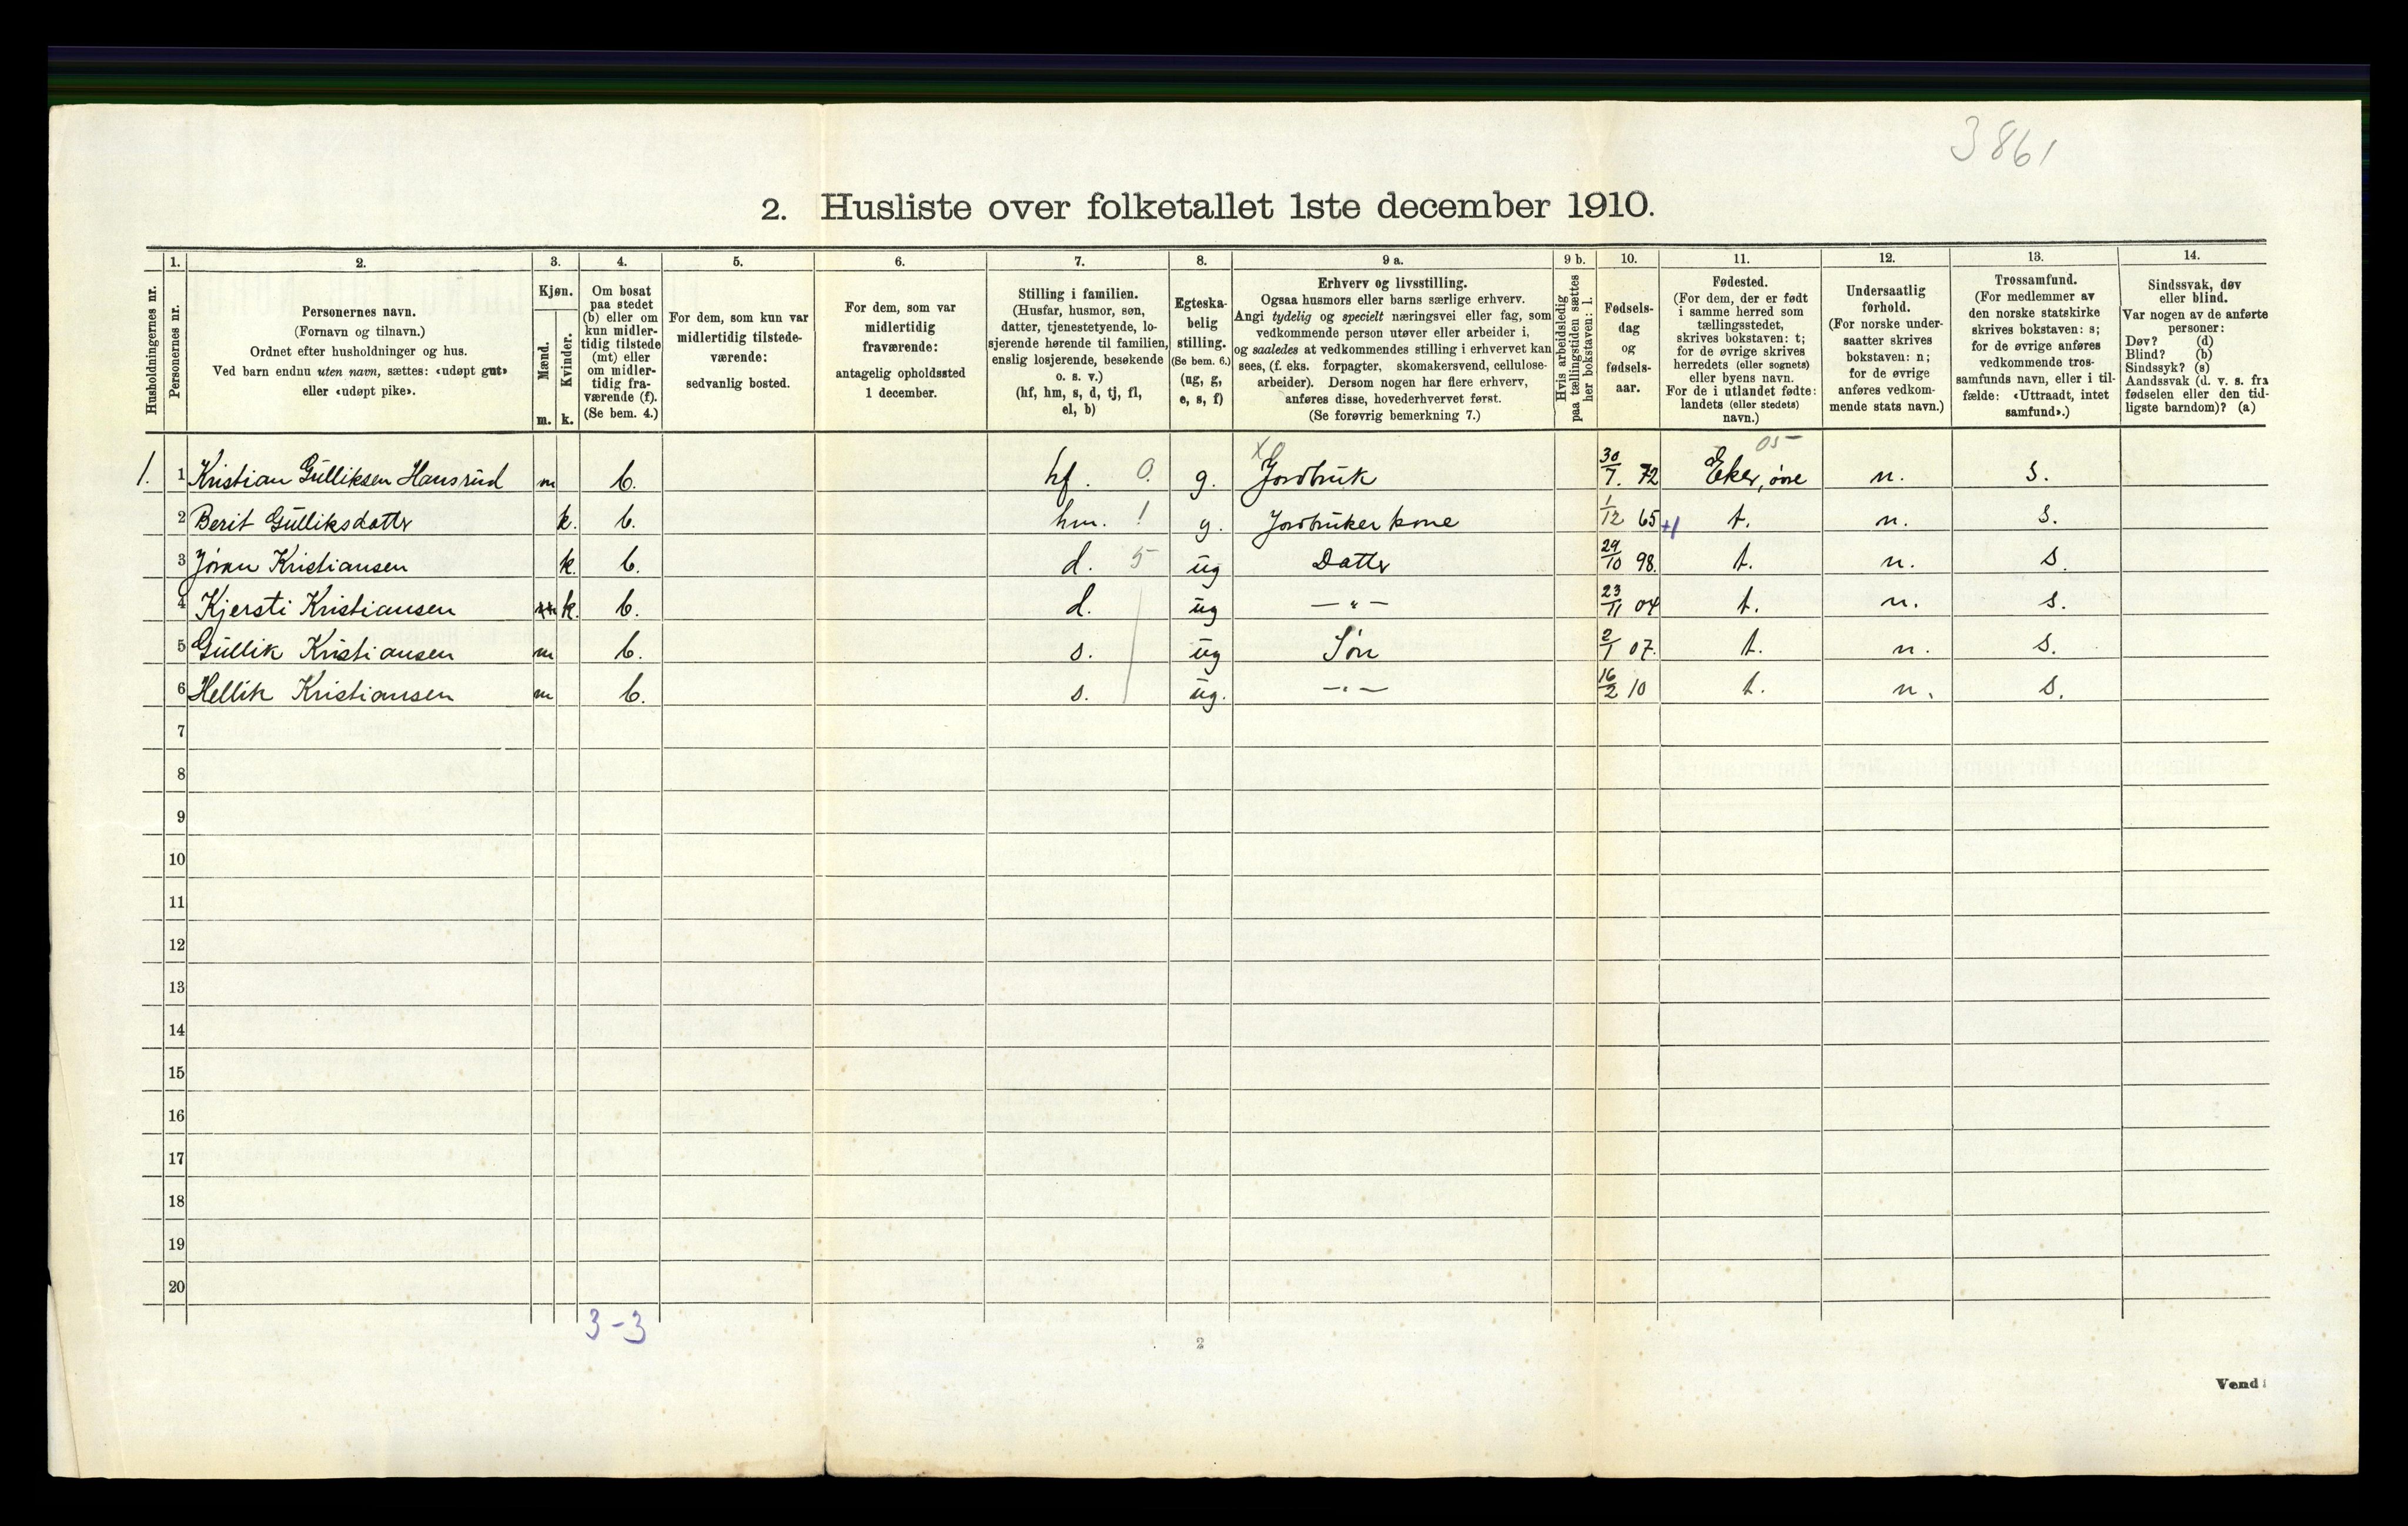 3861
2. Husliste over folketallet 1ste december 1910.
Husholdningernes nr.
1.
Personernes nr.
2.
Personernes navn.
(Fornavn og tilnavn.)
Ordnet efter husholdninger og hus.
Ved barn endnu uten navn, sættes: «udøpt gut»
eller «udøpt pike».
3.
Kjøn.
Mænd.
Kvinder.
m. k.
4.
Om bosat
paa stedet
(b) eller om
kun midler-
tidig tilstede
(mt) eller
om midler-
tidig fra-
værende (f).
(Se bem. 4.)
5.
For dem, som kun var
midlertidig tilstede-
værende:
sedvanlig bosted.
6.
For dem, som var
midlertidig
fraværende:
antagelig opholdssted
1 december.
7.
Stilling i familien.
(Husfar, husmor, søn,
datter, tjenestetyende, lo-
sjerende hørende til familien,
enslig losjerende, besøkende
o. s. v.)
(hf, hm, s, d, tj, fl,
el, b)
8.
Egteska-
belig
stilling.
(Se bem. 6.)
(ug, g,
e, s, f)
9 a.
Erhverv og livsstilling.
Ogsaa husmors eller barns særlige erhverv.
Angi tydelig og specielt næringsvei eller fag, som
vedkommende person utøver eller arbeider i,
og saaledes at vedkommendes stilling i erhvervet kan
sees, (f. eks. forpagter, skomakersvend, cellulose-
arbeider). Dersom nogen har flere erhverv,
anføres disse, hovederhvervet først.
(Se forøvrig bemerkning 7.)
9 b.
Hvis arbeidsledig
paa tællingstiden sættes
her bokstaven: l.
10.
Fødsels-
dag
og
fødsels-
aar.
11.
Fødested.
(For dem, der er født
i samme herred som
tællingsstedet,
skrives bokstaven: t;
for de øvrige skrives
herredets (eller sognets)
eller byens navn.
For de i utlandet fødte:
landets (eller stedets)
navn.)
12.
Undersaatlig
forhold.
(For norske under-
saatter skrives
bokstaven: n;
for de øvrige
anføres vedkom-
mende stats navn.)
13.
Trossamfund.
(For medlemmer av
den norske statskirke
skrives bokstaven: s;
for de øvrige anføres
vedkommende tros-
samfunds navn, eller i til-
fælde: «Uttraadt, intet
samfund».)
14.
Sindssvak, døv
eller blind.
Var nogen av de anførte
personer:
Døv? (d)
Blind? (b)
Sindssyk? (s)
Aandssvak (d. v. s. fra
fødselen eller den tid-
ligste barndom)? (a)
05
1. 1 Kristian Gulliksen Hansrud m b. hf. 0. g. X Jordbruk 30/7. 72 Eker, øvre n. s.
2 Berit Gulliksdatter k. b. hm. 1 g. Jordbruker kone 1/12 65 +1 t. n. s.
3 Jøran Kristiansen k. b. d. 5 ug Datter 29/10 98. t. n. s.
4 Kjersti Kristiansen k. b. d. ug — " — 23/11 04 t. n. s.
5 Gullik Kristiansen m b. s. ug Søn 2/1 07. t. n. s.
6 Hellik Kristiansen m b. s. ug. — " — 16/2 10 t. n. s.
7
8
9
10
11
12
13
14
15
16
17
18
19
20
3-3
2
Vend!